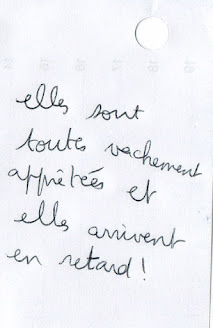 elles sont
toutes vachement
apprêtées et
elles arrivent
en retard !